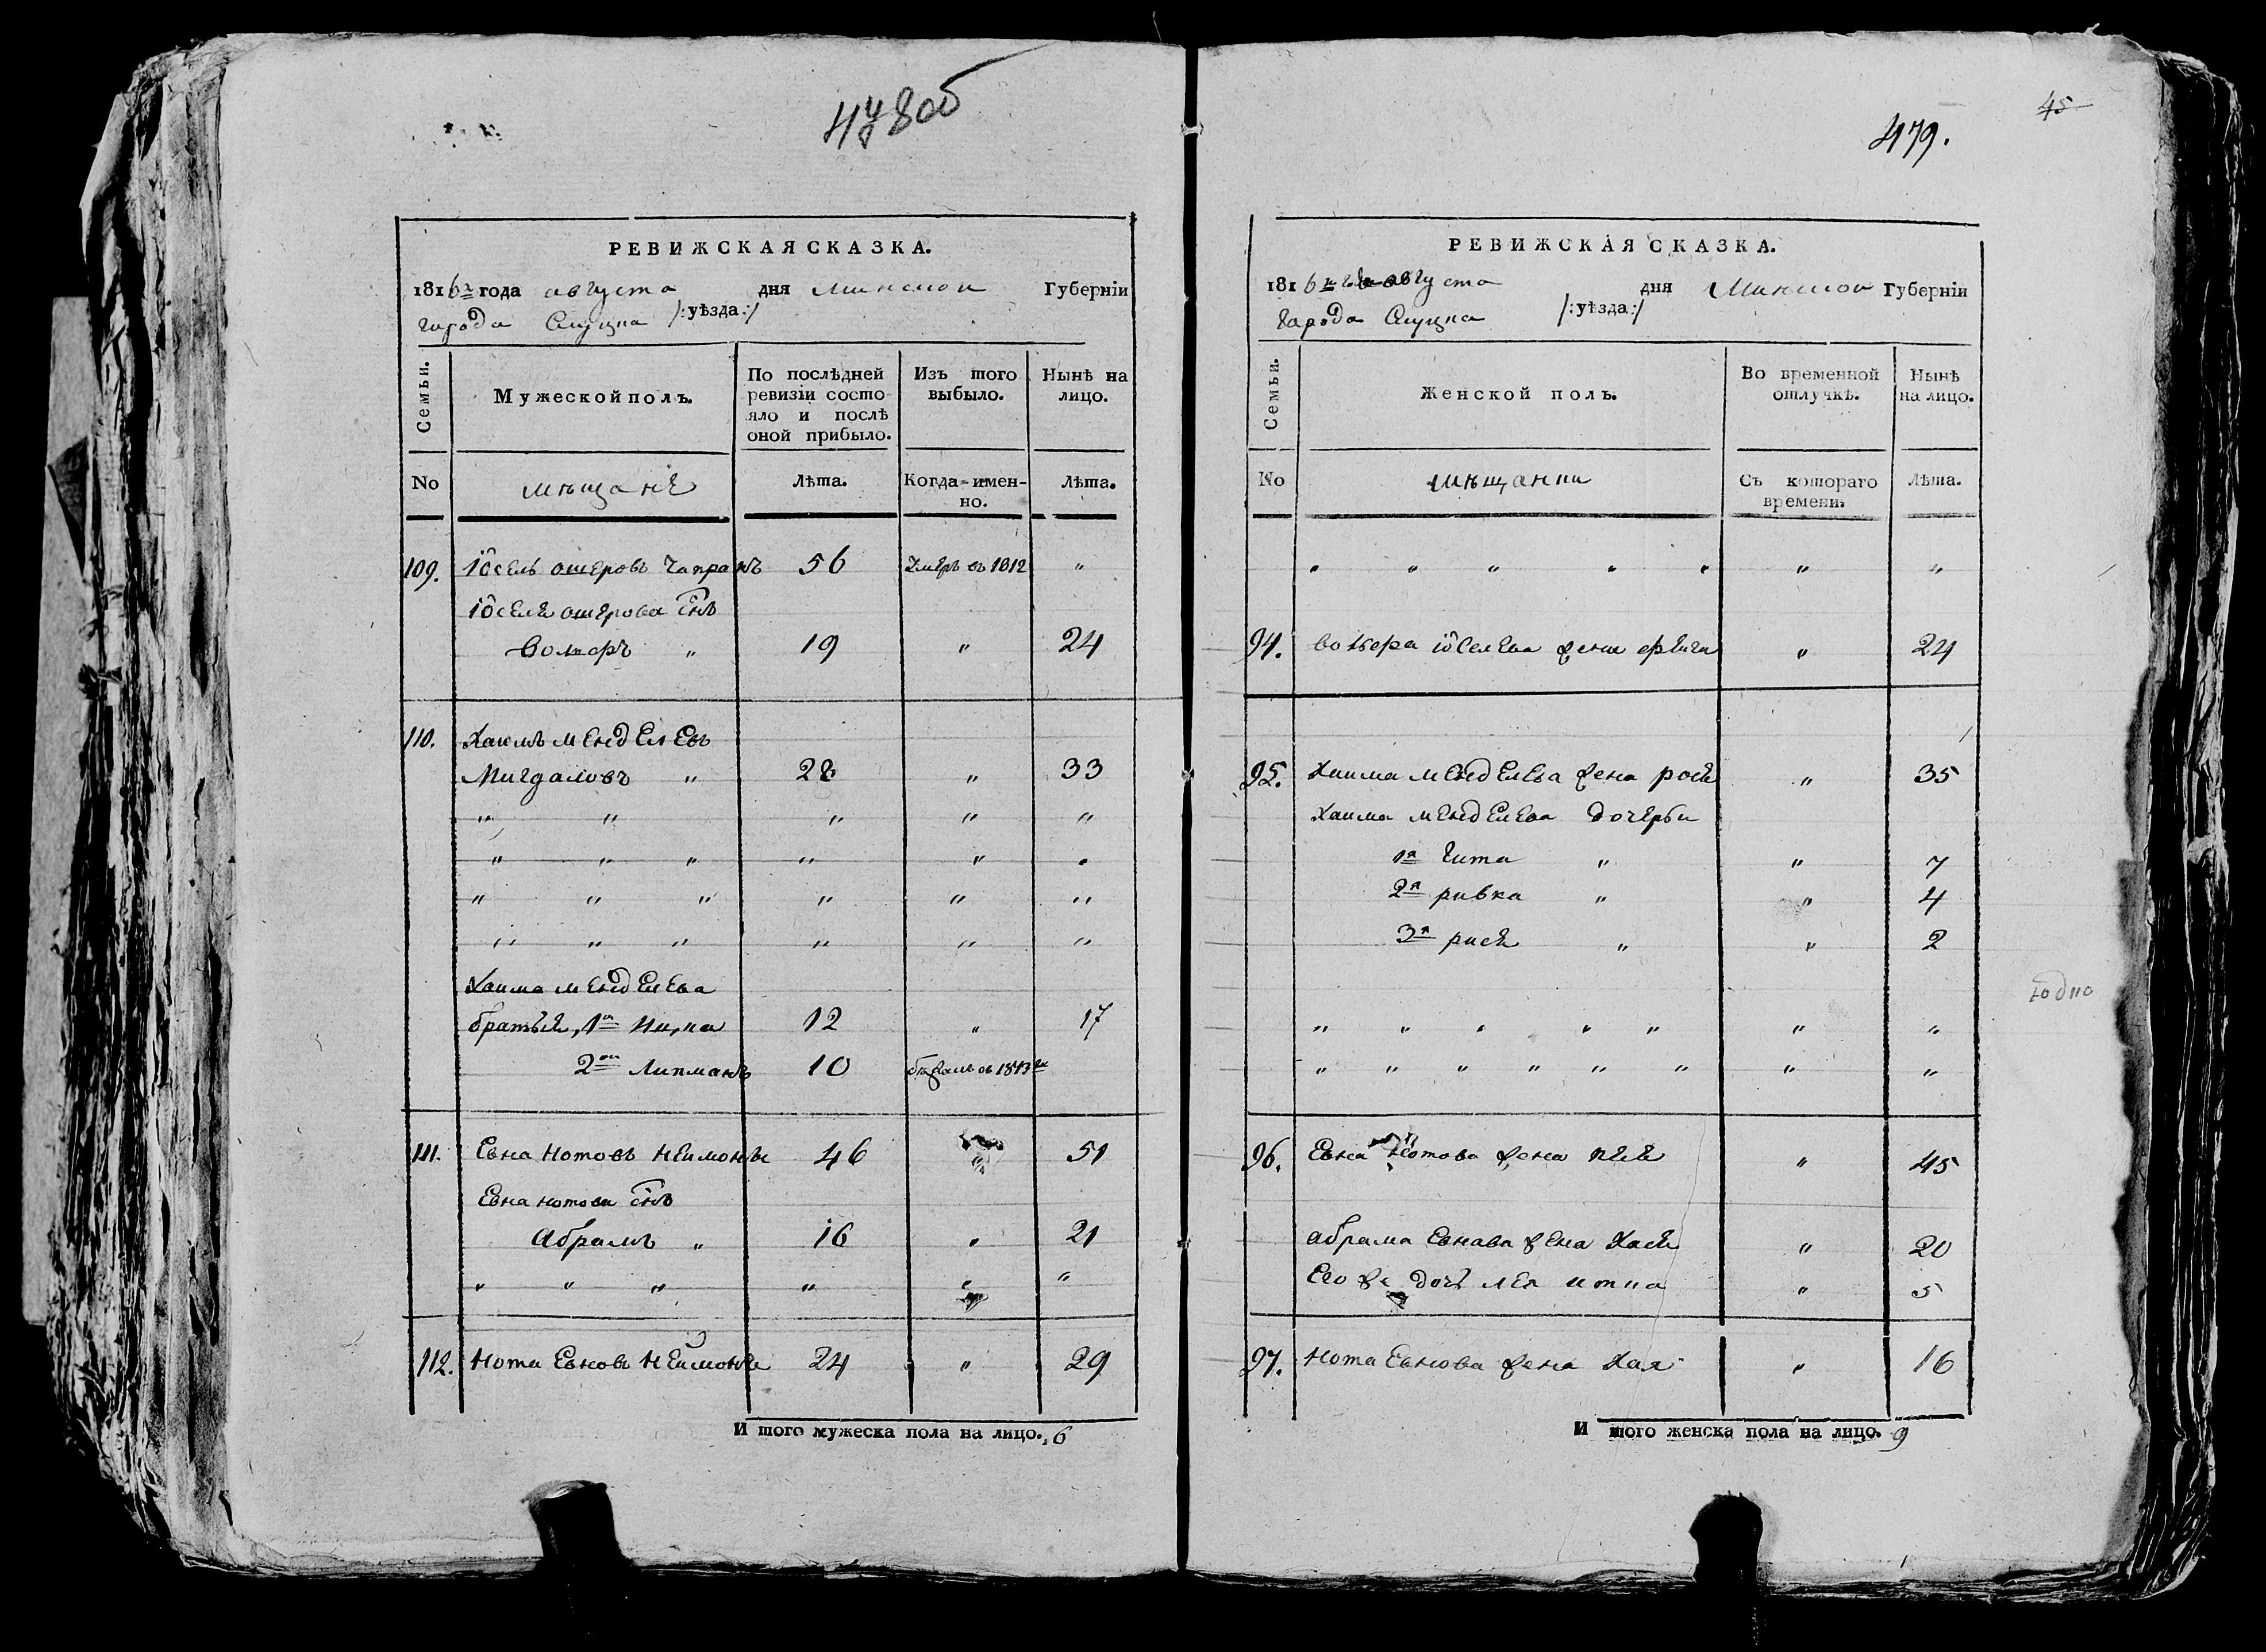 478об
РЕВИЖСКАЯ СКАЗКА.
1816го года августа дня Минской Губернїи
города Слуцка /:уѣзда:/
Семьи.
Мужеской полъ.
По послѣдней ревизїи состояло и послѣ оной прибыло.
Изъ того выбыло.
Нынѣ на лицо.
No
мѣщане
Лѣта.
Когда-именно.
Лѣта.
109. Іосель ошеровъ Чапранъ 56 Умеръ въ 1812 "
Іоселя ошерова сынъ
Вольфъ " 19 " 24
110. Хаимъ Менделевъ
Мигдаловъ " 28 " 33
" " " " "
" " " " " "
" " " " " "
" " " " " "
Хаима Менделева
братья, 1й Ицка 12 " 17
2ой Липманъ 10 бежалъ въ 1813м
111. Евна Нотовъ Неимонъ 46 " 51
Евна Нотова сынъ
Абрамъ " 16 " 21
" " " " " "
112. Нота Евновъ Неимонъ 24 " 29
И того мужеска пола на лицо. 6
45
479.
РЕВИЖСКАЯ СКАЗКА.
1816го августа дня Минской Губернїи
города Слуцка /:уѣзда:/
Семьи.
Женской полъ.
Во временной отлучкѣ.
Нынѣ на лицо.
No
мѣщанки
Съ котораго времени.
Лѣта.
" " " " " " "
94. Іоселева жена " 24
95. Хаима Менделева жена рося " 35
Хаима Менделева дочерьи
1я Гита " " 7
2я ривка " " 4
3я рися " " 2
" " " " " " "
" " " " " " " "
96. Евна Нотова жена " 45
Абрама Евнава жена Хася " 20
Его же дочь лея итка " 5
97. Нота Евнова жена Хая " 16
И того женска пола на лицо. 9